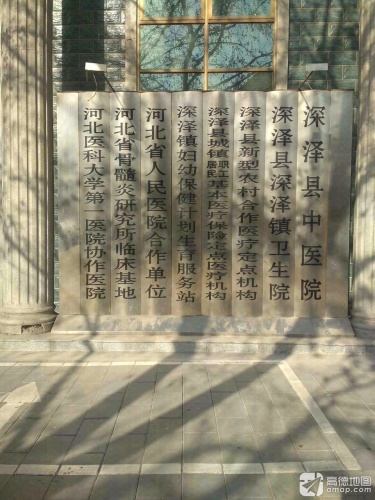 深泽县中医院
深泽县深泽镇卫生院
深泽县新型农村合作医疗定点机构
深泽县城镇职工居民基本医疗保险定点医疗机构
深泽镇妇幼保健计划生育服务站
河北省人民医院合作单位
河北省骨髓炎研究所临床基地
河北医科大学第一医院协作医院
高德地图
amap.com